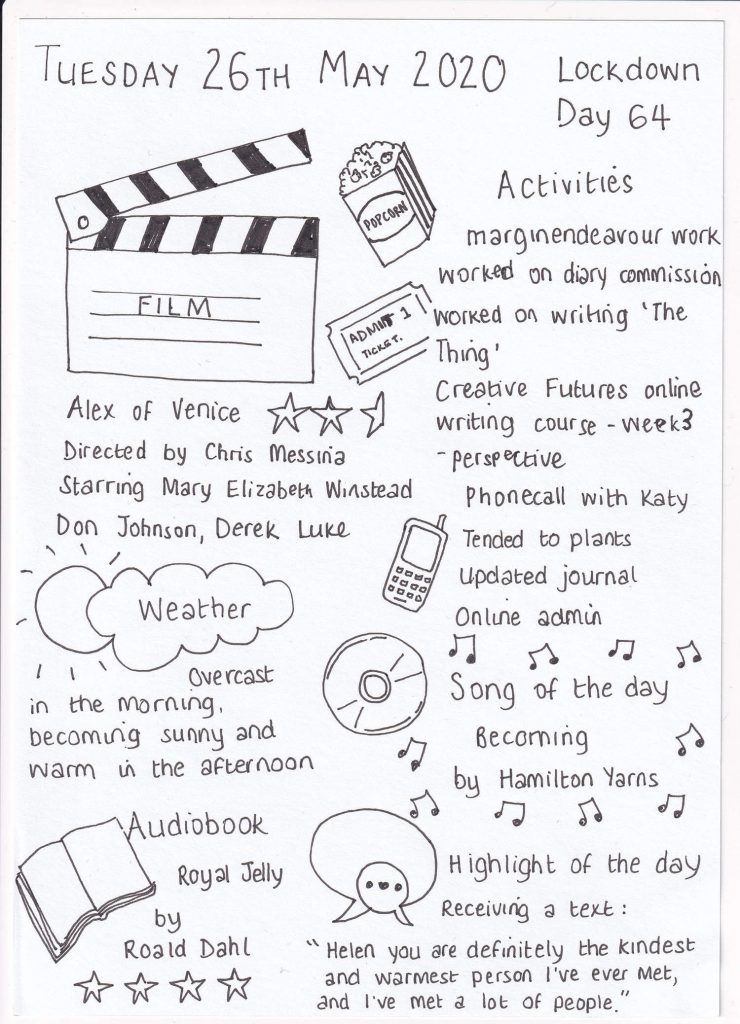 TUESDAY 26TH MAY 2020
Lockdown
Day 64
POPCORN
FILM
ADMIT 1
TICKET.
Alex of Venice
Directed by Chris Messina
Starring Mary Elizabeth Winstead
Don Johnson, Derek Luke
Weather
Overcast
in the morning,
becoming sunny and
warm in the afternoon
Audiobook
Royal Jelly
by
Roald Dahl
Activities
marginendeavour work
worked on diary commission
worked on writing 'The
Thing'
Creative Futures online
writing course - week 3
- perspective
Phonecall with Katy
Tended to plants
Updated journal
Online admin
Song of the day
Becoming
by Hamilton Yarns
Highlight of the day
Receiving a text:
"Helen you are definitely the kindest
and warmest person I've ever met,
and I've met a lot of people."